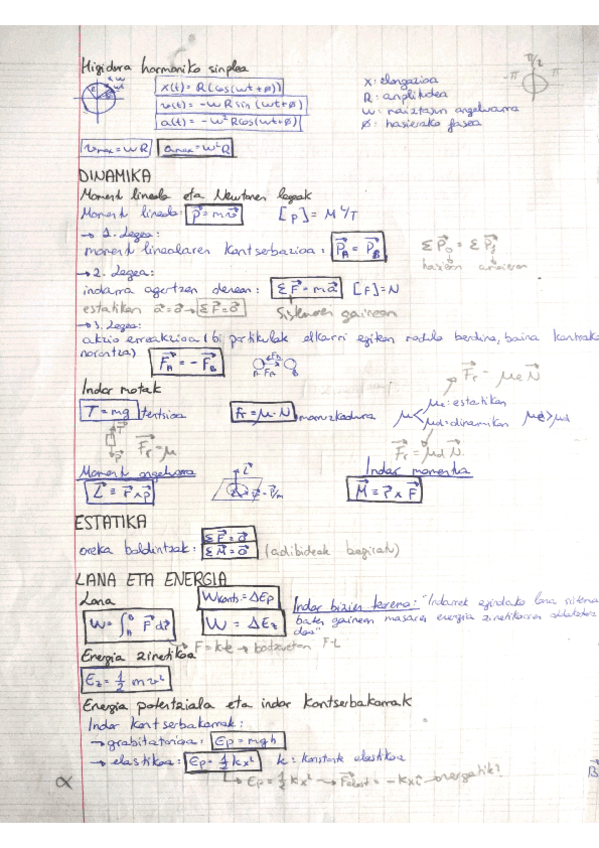 Higidura harmoniko sinplea
x(t) = R cos(ωt+ø)
v(t) = -ωR sin(ωt+ø)
a(t) = -ω²R cos(ωt+ø)
x: elongazioa
R: anplitudea
ω: maiztasun angeluarra
ø: hasierako fasea
π/2
-π π
vmax = ωR amax = ω²R
DINAMIKA
Momentu lineala eta Newtonen legeak
Momentu lineala: p⃗ = mv⃗ [p] = M L/T
→ 1. Legea:
momentu linealaren kontserbazioa: P⃗A = P⃗B ΣP⃗o = ΣP⃗f
hasieran amaieran
→ 2. Legea:
indarra agertzen denean: ΣF⃗ = ma⃗ [F] = N
estatikan a⃗ = 0⃗ → ΣF⃗ = 0⃗ sistemaren gainean
→ 3. Legea:
akzio erreakzioa (bi partikulak elkarri egiten modulu berdina, baina kontrako
norantza) F⃗A = -F⃗B
Fr = μe N⃗
Indar motak
T = mg tentsioa Fr = μ·N marruskadura μ< μe: estatikan μd: dinamikan μe > μd
F⃗r = μ F⃗r = μd N⃗
Momentu angeluarra Indar momentua
L⃗ = r⃗ ∧ p⃗ M⃗ = r⃗ ∧ F⃗
ESTATIKA
oreka baldintzak: ΣF⃗ = 0⃗ ΣM⃗ = 0⃗ (adibideak begiratu)
LANA ETA ENERGIA
Lana Wkonts = ΔEp Indar bizien teorema: "Indarrek egindako lana sistema
W = ∫ F⃗ dr⃗ W = ΔEz baten gainean masaren energia zinetikoaren aldaketa
da"
Energia zinetikoa
Ez = 1/2 mv²
Energia potentziala eta indar kontserbakorrak
Indar kontserbakorrak:
→ grabitatorioa: Ep = mgh
→ elastikoa: Ep = 1/2 kx² k: konstante elastikoa
→ Ep = 1/2 kx² → F⃗elast = -kx
α